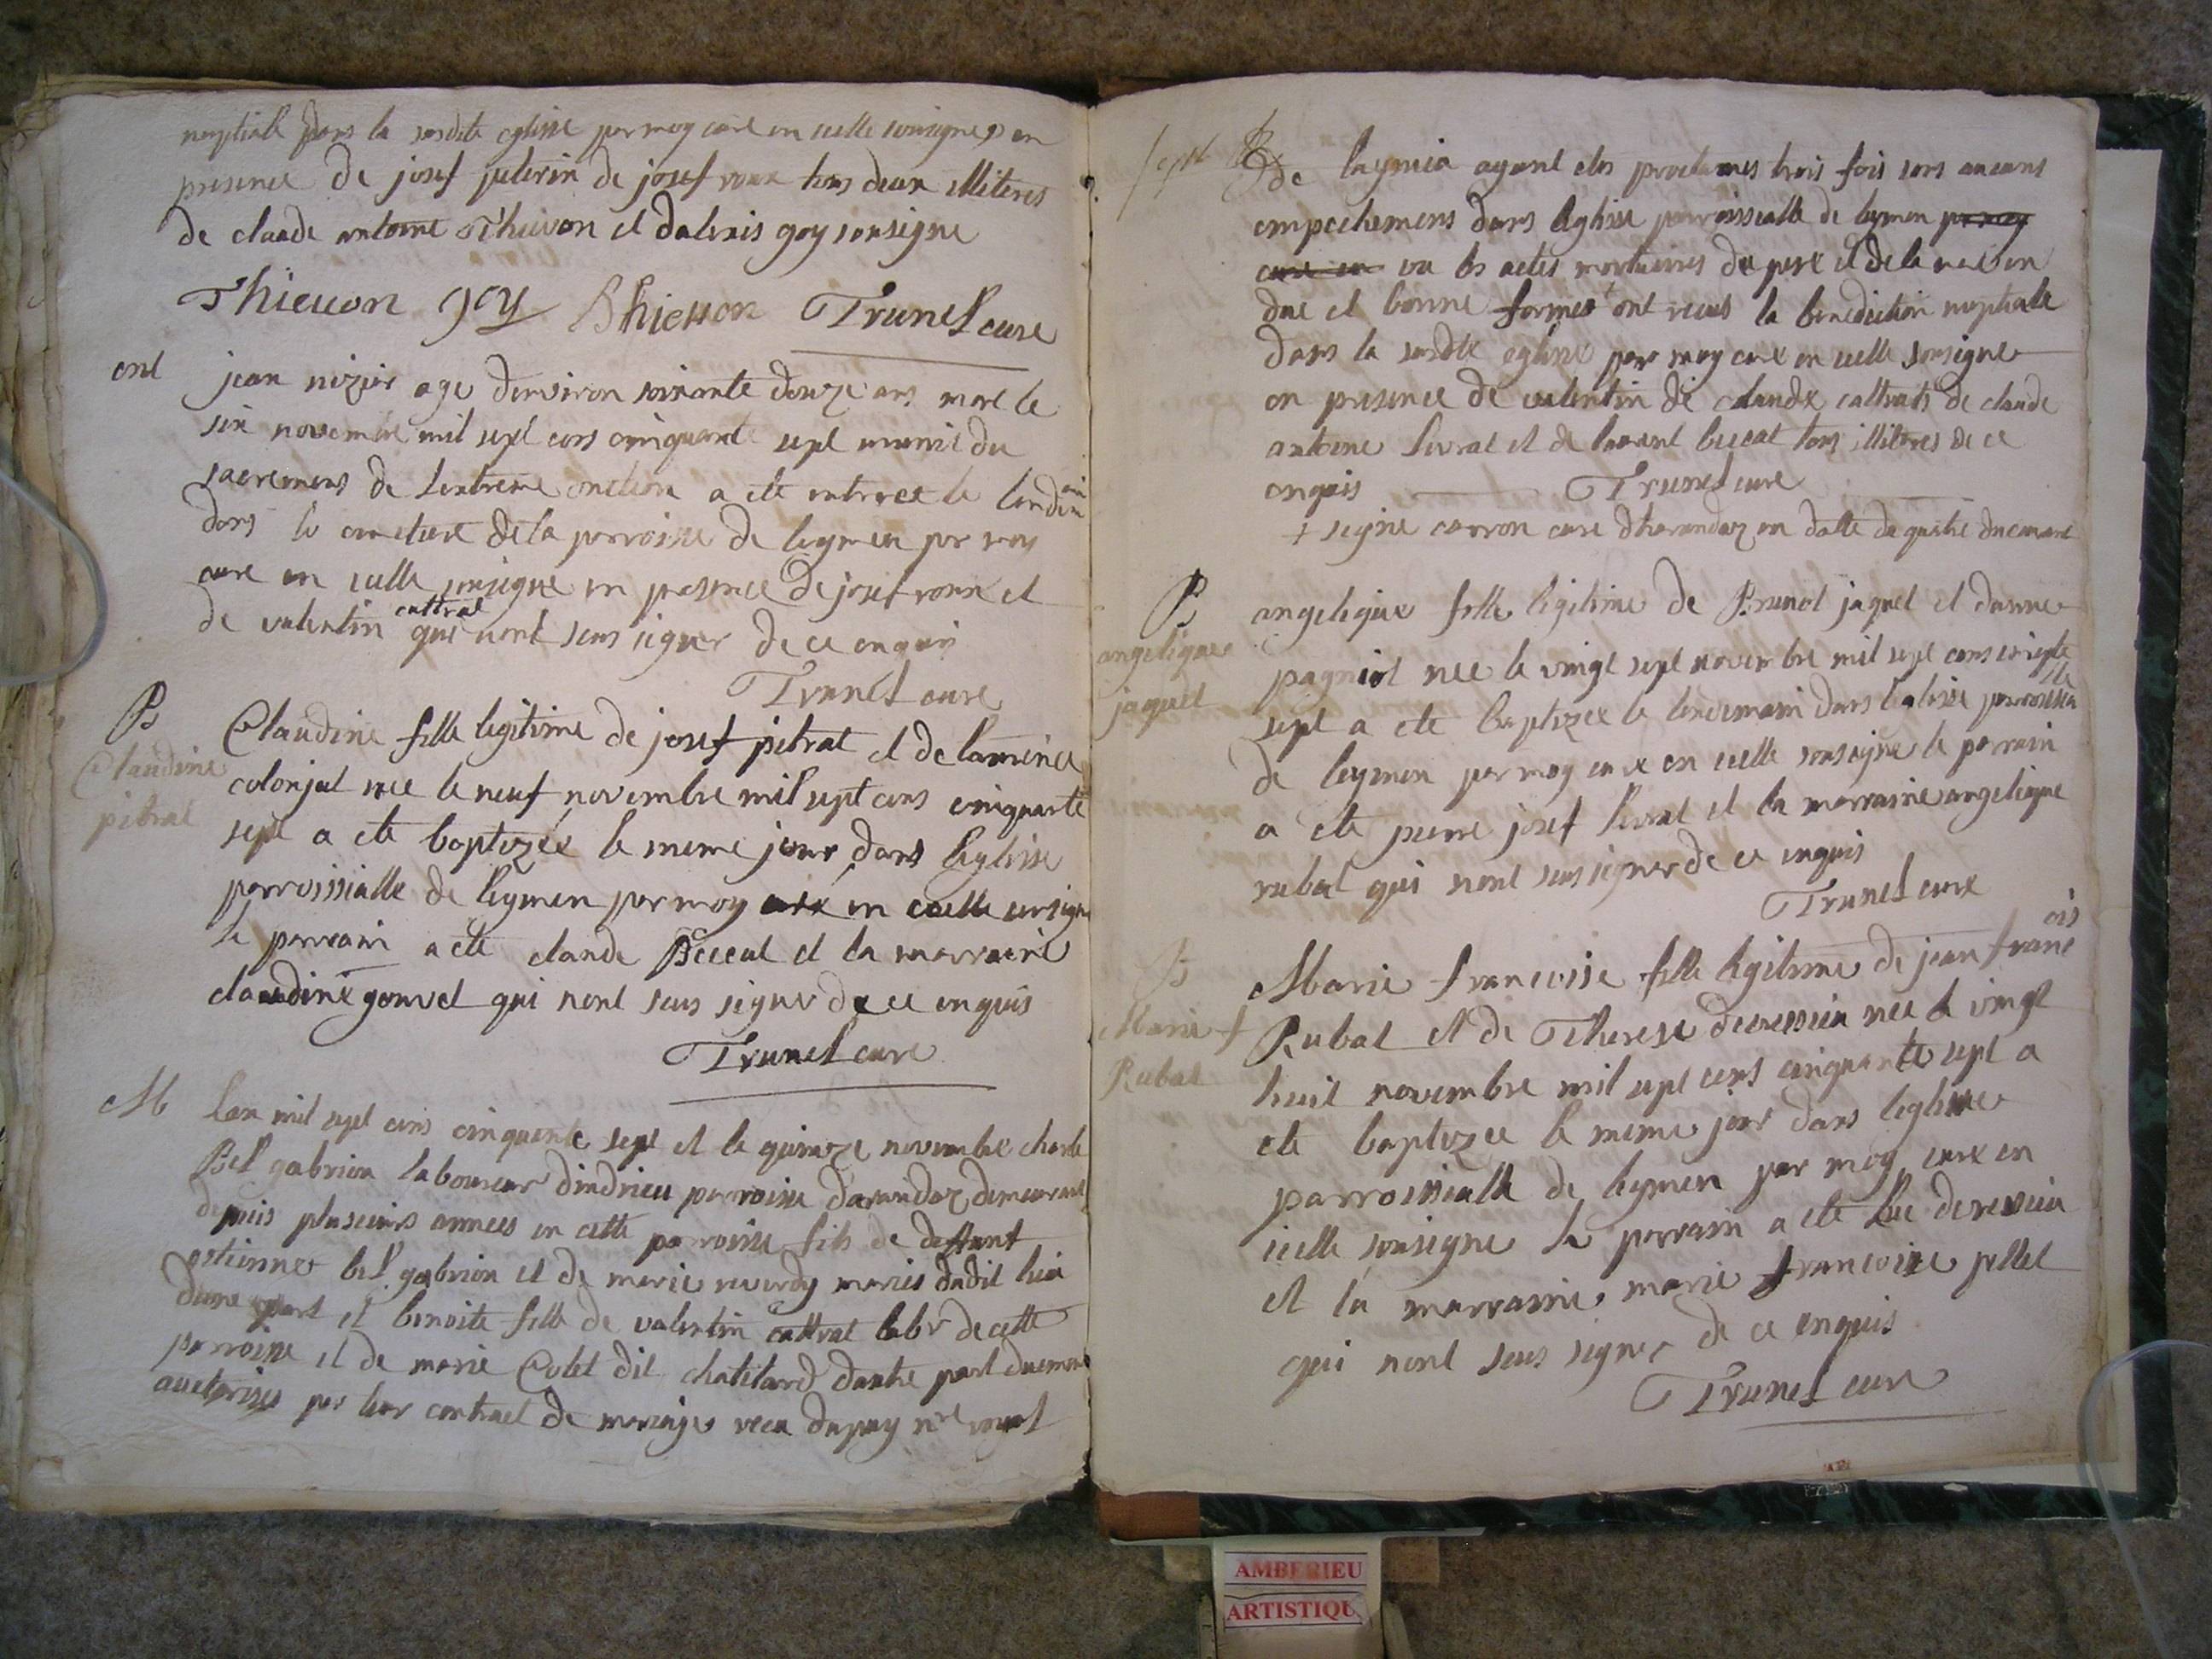 nuptiale dans la susdite eglise par moy cure en icelle sousigne en
presence de josef puterin de josef roux tous deux illiteres
de claude antoine Thievon et dalexis goy sousigne
Thievon goy Thievon Trunel cure
ent
jean nizier age denviron soixante douze ans mort le
six novembre mil sept cens cinquante sept munit du
sacremens de lextreme onction a ete enterree le lendemain
dans le cimetiere de la parroisse de leymen par moy
cure en icelle sousigne en presence de josef roux et
de valentin cattrat qui nont seus signer de ce enquis
Trunel cure
B
Claudine
pitrat
Claudine fille legitime de josef pitrat et de laurence
colonjat nee le neuf novembre mil sept cens cinquante
sept a ete baptizee le meme jour dans leglise
parroissialle de leymen par moy cure en icelle sousigne
le parrain a ete claude Beccat et la marraine
claudine gonvet qui nont seus signer de ce enquis
Trunel cure
M
Lan mil sept cens cinquante sept et le quinze novembre charle
Bel gabrion laboureur dindrieu parroisse darandaz demeurant
depuis plusieurs annees en cette parroisse fils de deffunt
estienne bel gabrion et de marie reverdy maries dudit lieu
dune part et benoite fille de valentin cattrat labr de cette
parroisse et de marie Colet dit chatelard dautre part duemens
auctorises par leur contract de mariage recu dupuy nre royal
de laynieu ayant etes proclames trois fois sans aucuns
empechemens dans leglise parroissialle de leymen par moy
cure en vu les actes mortuaires du pere et de la mere en
due et bonne formes + ont recus la benediction nuptiale
dans la susdite eglise par moy cure en icelle sousigne
en presence de valentin de claude cattrats de claude
antoine livrat et de laurent beccat tous illiteres de ce
enquis Trunel cure
+ signe carron cure dharandaz en datte du quatre du courant
B
angelique
jaquet
angelique fille legitime de Brunot jaquet et danne
pagniot nee le vingt sept novembre mil sept cens cinqte
sept a ete baptizee le lendemain dans leglise parroissialle
de leymen par moy cure en icelle sousigne le parrain
a ete pierre josef livrat et la marraine angelique
rubat qui nont seus signer de ce enquis
Trunel cure
B
Marie f
Rubat
Marie francoise fille legitime de jean francois
Rubat et de Therese decressieu nee le vingt
huit novembre mil sept cens cinquante sept a
ete baptizee le meme jour dans leglise
parroissialle de leymen par moy cure en
icelle sousigne le parrain a ete
et la marraine marie francoise pellet
qui nont seus signer de ce enquis
Trunel cure
AMBERIEU
ARTISTIQU